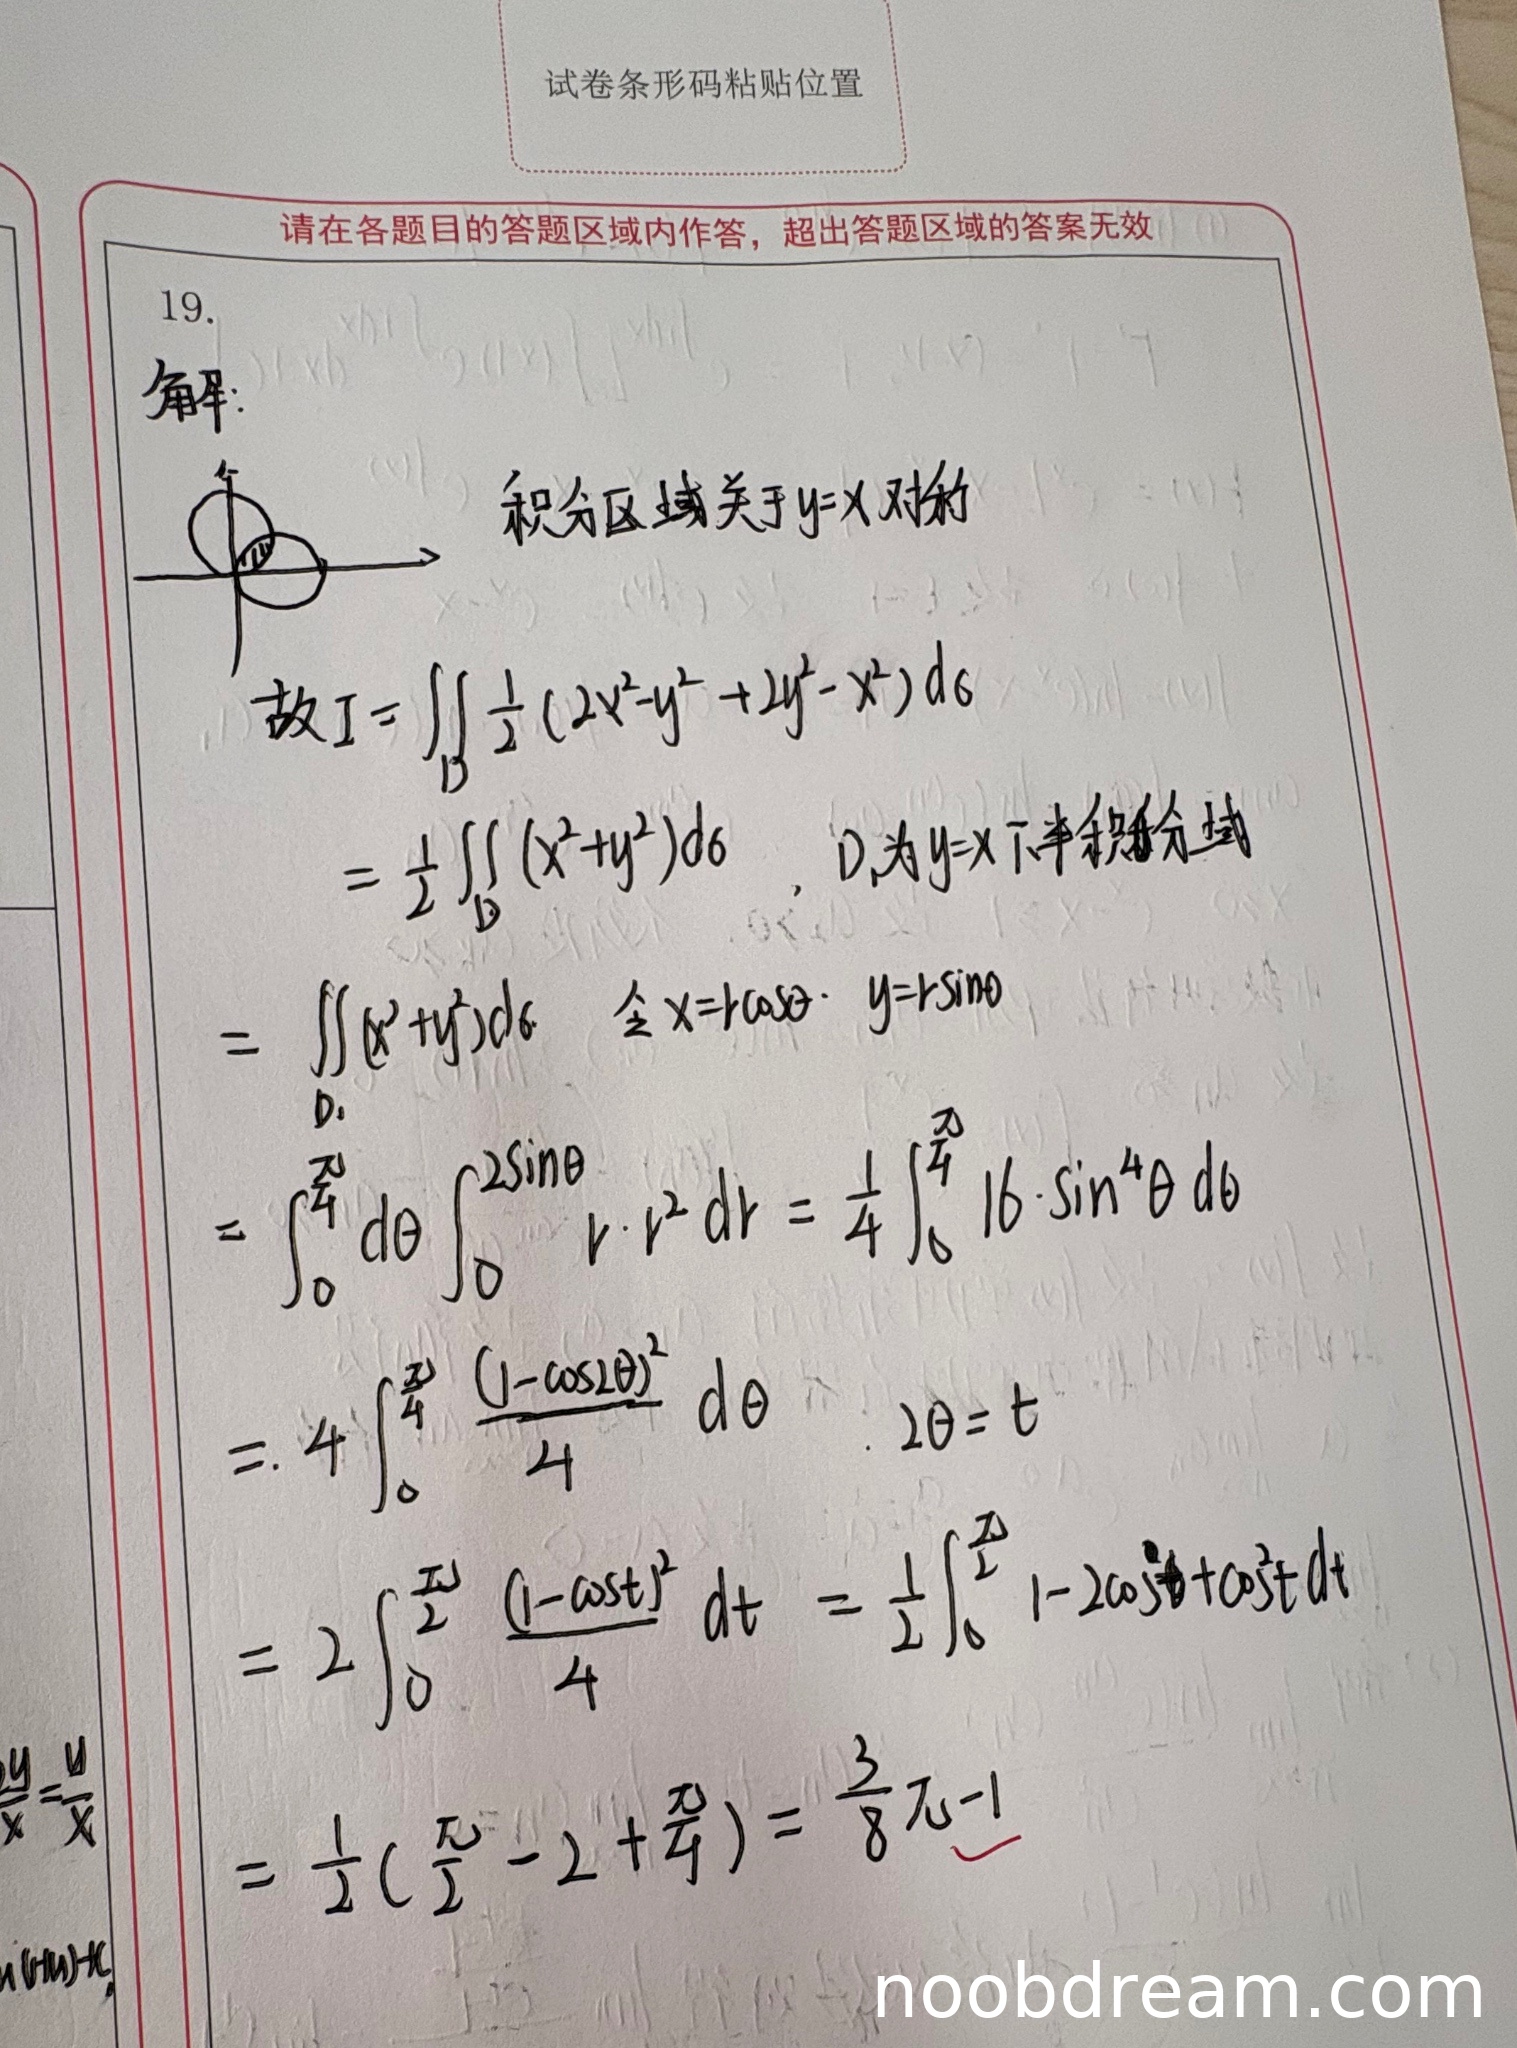 试卷条形码粘贴位置
请在各题目的答题区域内作答，超出答题区域的答案无效
19.
解:
积分区域关于y=x对称
故I=∬_D 1/2(2x²-y²+2y²-x²)dσ
=1/2∬_D(x²+y²)dσ , D₁为y=x下半积分域
=∬_D₁(x²+y²)dσ 令x=rcosθ. y=rsinθ
=∫_0^{π/4}dθ∫_0^{2sinθ} r·r²dr=1/4∫_0^{π/4}16·sin⁴θdθ
=.4∫_0^{π/4} (1-cos2θ)²/4 dθ . 2θ=t
=2∫_0^{π/2} (1-cost)²/4 dt =1/2∫_0^{π/2} 1-2cost+cos²tdt
=1/2(π/2-2+π/4)=3/8π-1
y/x=u/x
noobdream.com